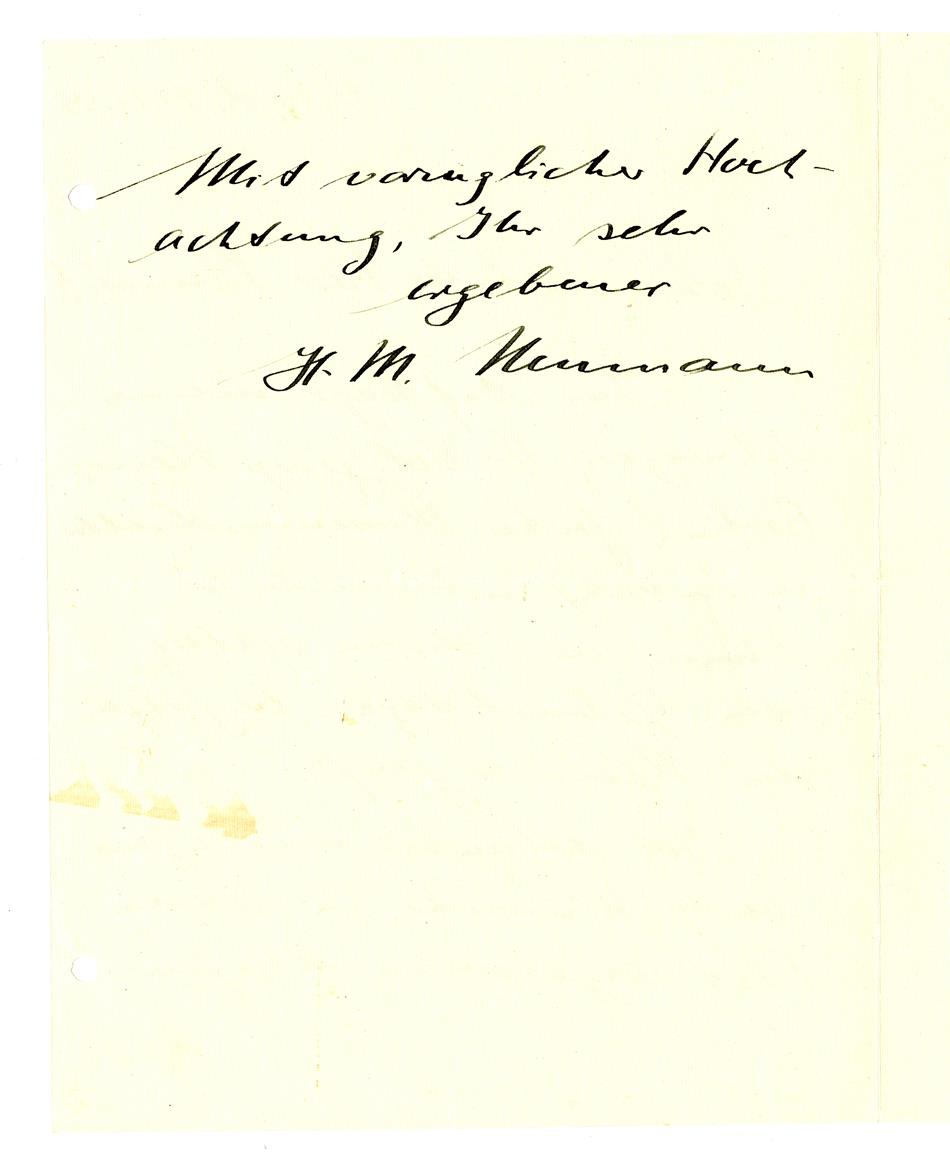 Mit vorzüglicher Hoch-
achtung, Ihr sehr
ergebener
H. M. Neumann